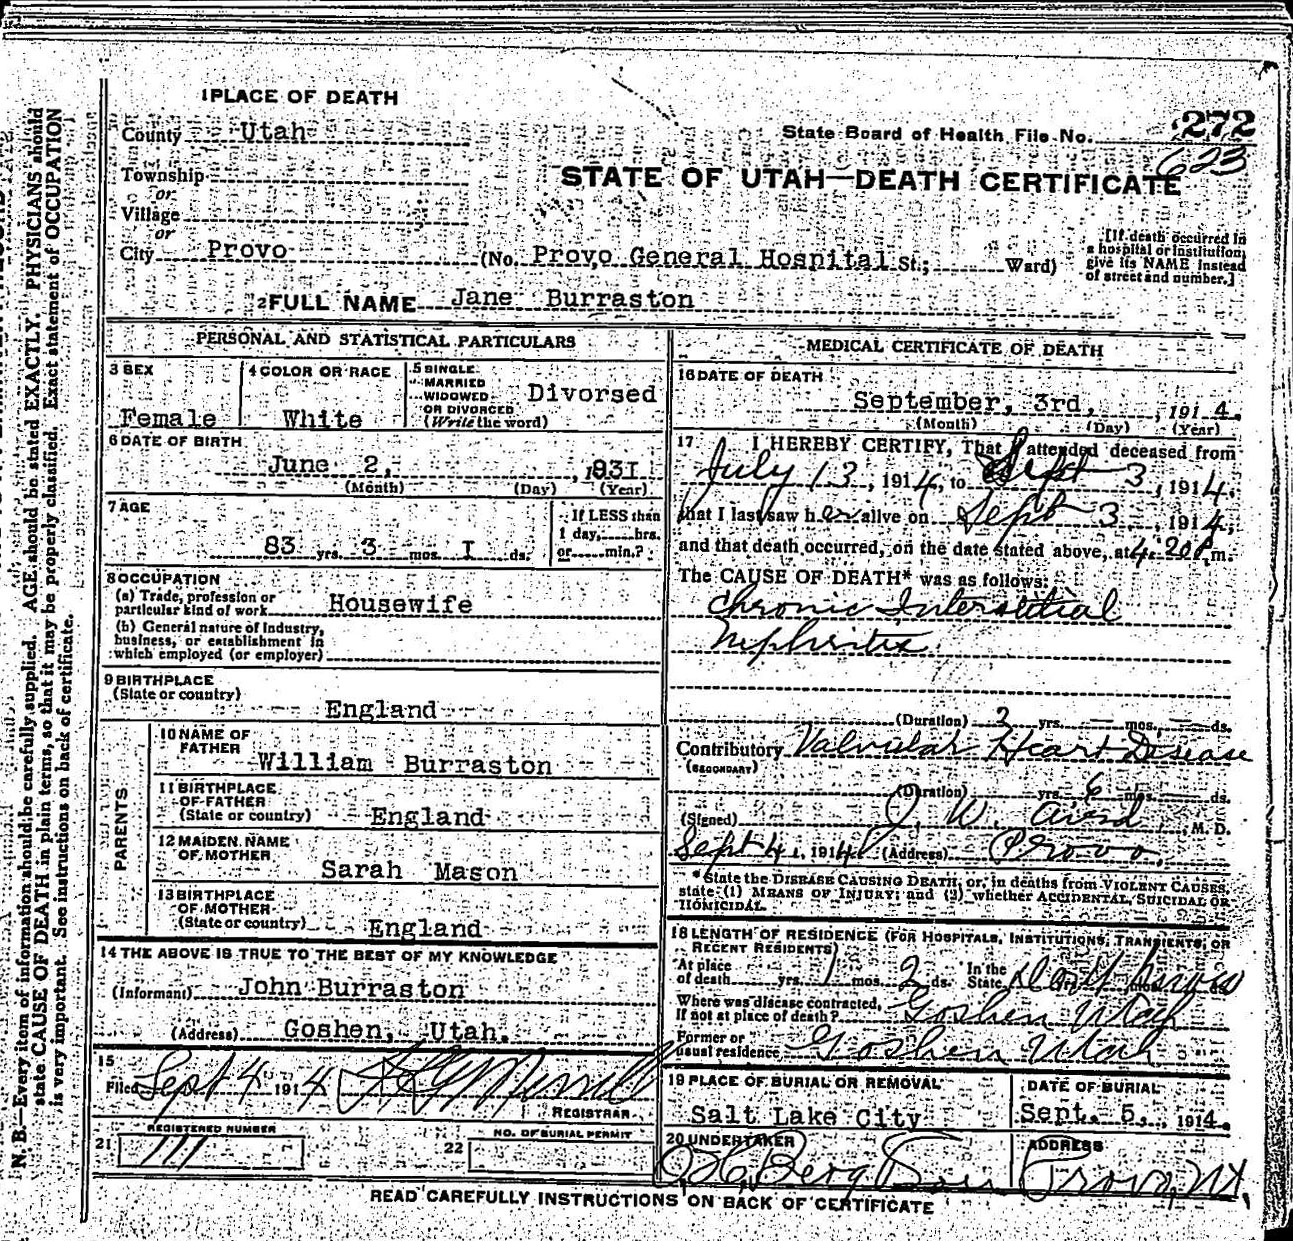 1 PLACE OF DEATH
County Utah
State Board of Health File No. 272
623
Township
or
Village
or
STATE OF UTAH—DEATH CERTIFICATE
City Provo (No. Provo General Hospital St.; Ward)
[If death occurred in
a hospital or institution,
give its NAME instead
of street and number.]
2 FULL NAME Jane Burraston
PERSONAL AND STATISTICAL PARTICULARS
3 SEX
Female
4 COLOR OR RACE
White
5 SINGLE
MARRIED
WIDOWED
OR DIVORCED
(Write the word)
Divorsed
6 DATE OF BIRTH
June 2, 1831
(Month) (Day) (Year)
7 AGE
83 yrs. 3 mos. I ds.
If LESS than
1 day, hrs.
or min.?
8 OCCUPATION
(a) Trade, profession or
particular kind of work Housewife
(b) General nature of Industry,
business, or establishment in
which employed (or employer)
9 BIRTHPLACE
(State or country)
England
PARENTS
10 NAME OF
FATHER
William Burraston
11 BIRTHPLACE
OF FATHER
(State or country) England
12 MAIDEN NAME
OF MOTHER
Sarah Mason
13 BIRTHPLACE
OF MOTHER
(State or country) England
14 THE ABOVE IS TRUE TO THE BEST OF MY KNOWLEDGE
(Informant) John Burraston
(Address) Goshen, Utah.
15
Filed Sept 4 1914
REGISTRAR.
REGISTERED NUMBER
21 111
NO. OF BURIAL PERMIT
22
MEDICAL CERTIFICATE OF DEATH
16 DATE OF DEATH
September, 3rd, 1914.
(Month) (Day) (Year)
17 I HEREBY CERTIFY, That I attended deceased from
July 13, 1914, to Sept 3, 1914.
that I last saw her alive on Sept 3, 1914,
and that death occurred, on the date stated above, at 4.20 P.m.
The CAUSE OF DEATH* was as follows:
Chronic Interstitial
Nephritis
(Duration) 2 yrs. mos. ds.
Contributory Valvular Heart Disease
(SECONDARY)
(Duration) yrs. 6 mos. ds.
(Signed) J. W. Aird, M. D.
Sept 4, 1914 (Address) Provo.
*State the DISEASE CAUSING DEATH, or, in deaths from VIOLENT CAUSES,
state (1) MEANS OF INJURY; and (2) whether ACCIDENTAL, SUICIDAL OR
HOMICIDAL.
18 LENGTH OF RESIDENCE (FOR HOSPITALS, INSTITUTIONS, TRANSIENTS, OR
RECENT RESIDENTS)
At place
of death yrs. 1 mos. 2 ds.
In the
State Don't know
Where was disease contracted,
If not at place of death? Goshen Utah
Former or
usual residence Goshen Utah
19 PLACE OF BURIAL OR REMOVAL
Salt Lake City
DATE OF BURIAL
Sept. 5, 1914.
20 UNDERTAKER
Berg
ADDRESS
Provo, Ut.
READ CAREFULLY INSTRUCTIONS ON BACK OF CERTIFICATE
N. B.—Every item of information should be carefully supplied. AGE should be stated EXACTLY. PHYSICIANS should
state CAUSE OF DEATH in plain terms, so that it may be properly classified. Exact statement of OCCUPATION
is very important. See instructions on back of certificate.